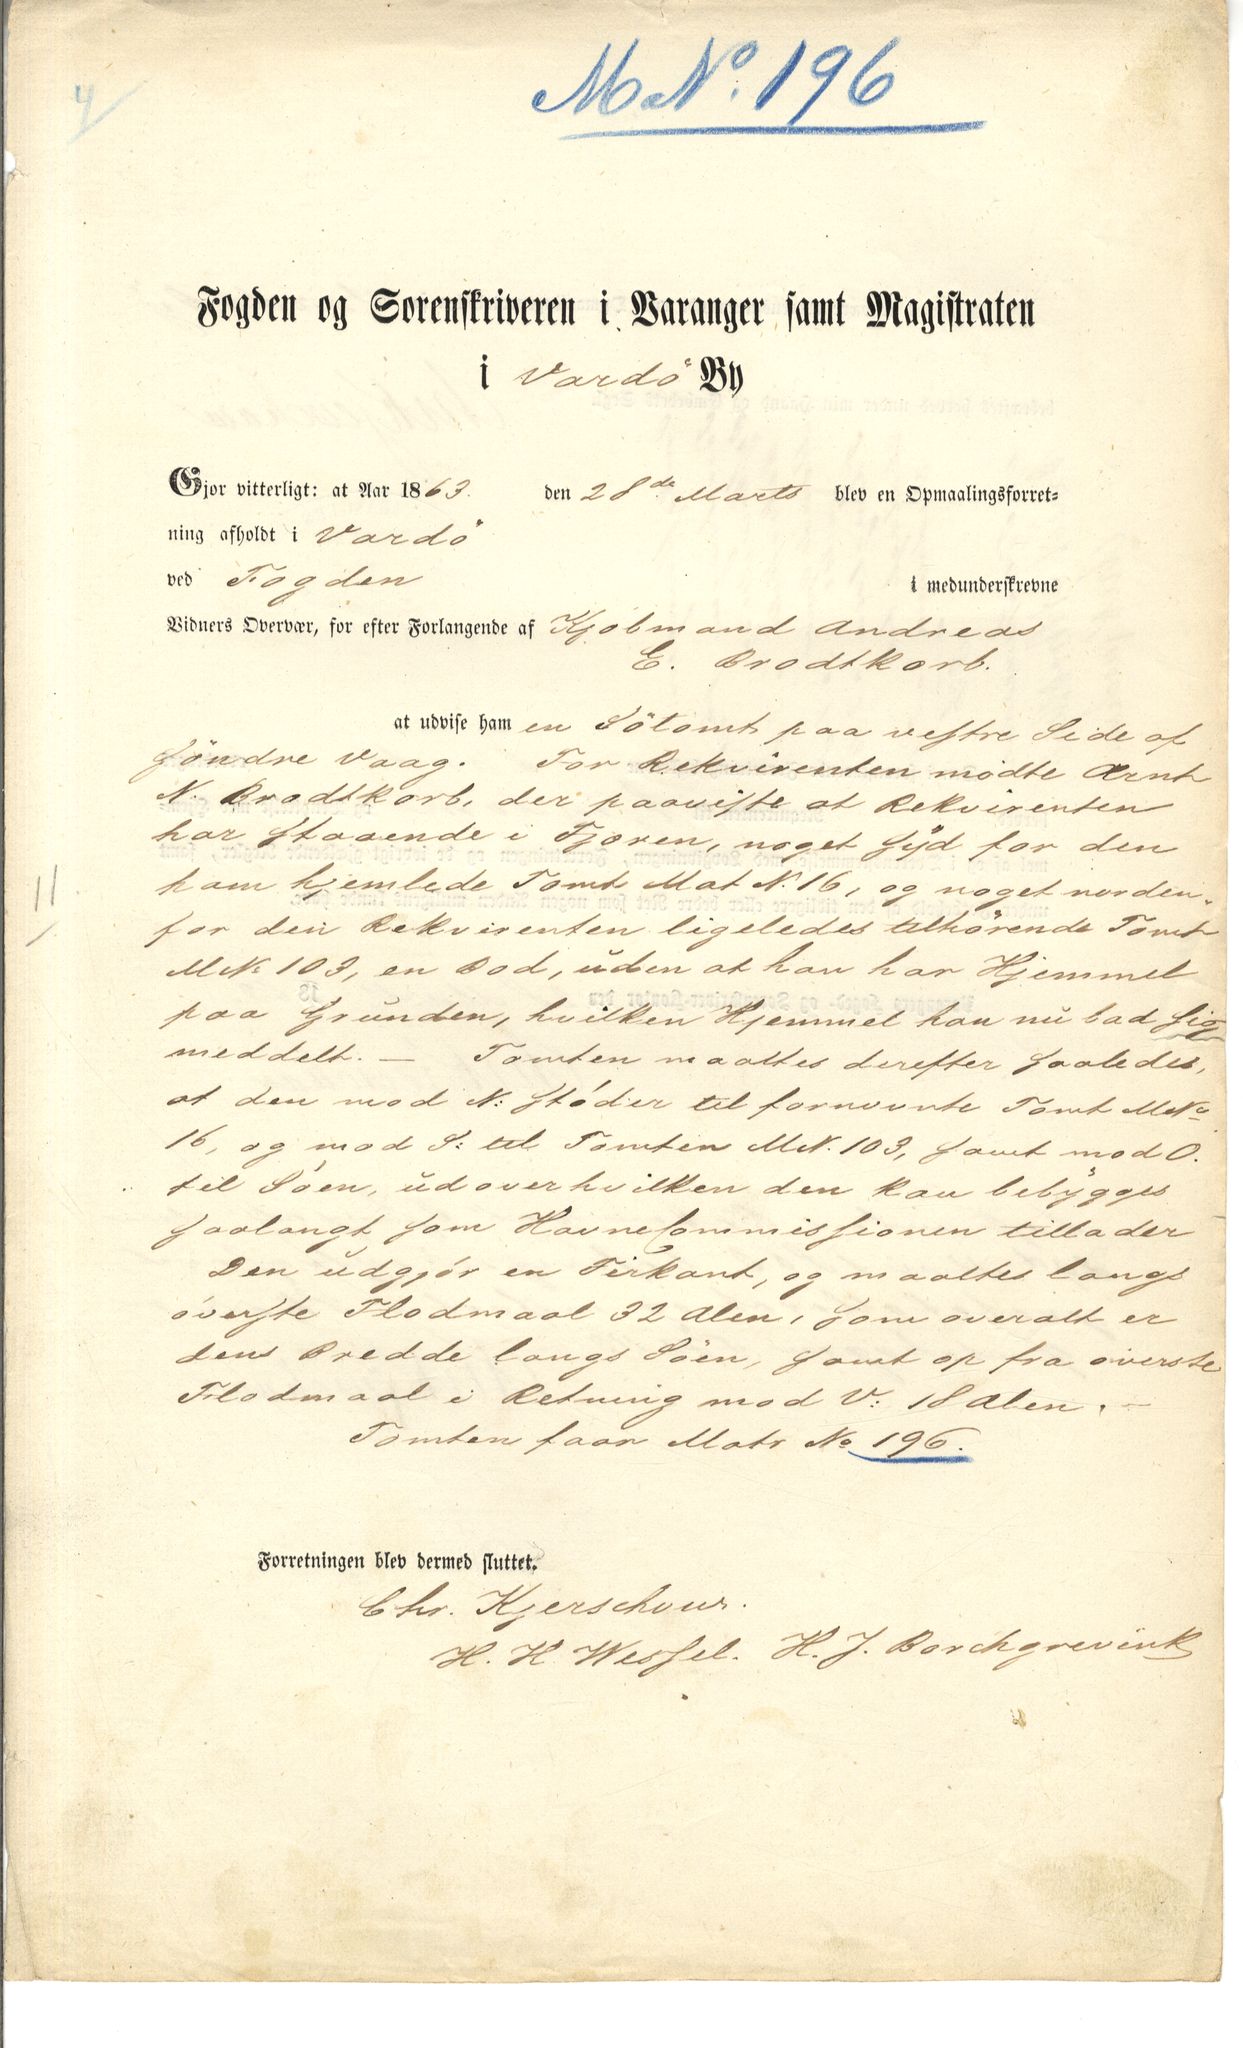 4
M No. 196
Fogden og Sorenskriveren i Varanger samt Magistraten
i Vardö By
Gjør vitterligt: at Aar 1863. den 28de Marts blev en Opmaalingsforret-
ning afholdt i Vardö
ved Fogden i medunderskrevne
Vidners Overvær, for efter Forlangende af Kjøbmand Andreas
E. Brodtkorb.
at udvise ham en Sötomt paa vestre Side af
Söndre Vaag. For Rekvirenten mødte Arnt
N. Brodtkorb, der paaviste at Rekvirenten
har staaende i Fjæren, noget syd for den
ham hjemlede Tomt Mat N. 16, og noget norden-
11
for den Rekvirenten ligeledes tilhörende Tomt
M N. 103, en Bod, uden at han har Hjemmel
paa Grunden, hvilken Hjemmel han nu bad sig
meddelt. — Tomten maaltes derefter saaledes,
at den mod N: støder til fornevnte Tomt M No
16, og mod S: til Tomten M N. 103, samt mod O.
til Søen, udover hvilken den kan bebygges
saalangt som HavneCommissionen tillader
Den udgjør en Firkant, og maaltes langs
øverste Flodmaal 32 Alen, som overalt er
dens Bredde langs Söen, samt op fra øverste
Flodmaal i Retning mod V: 18 Alen. —
Tomten faar Matr No 196.
Forretningen blev dermed sluttet.
Chr. Kjerschow.
H. H. Wessel. H. J. Borchgrevink